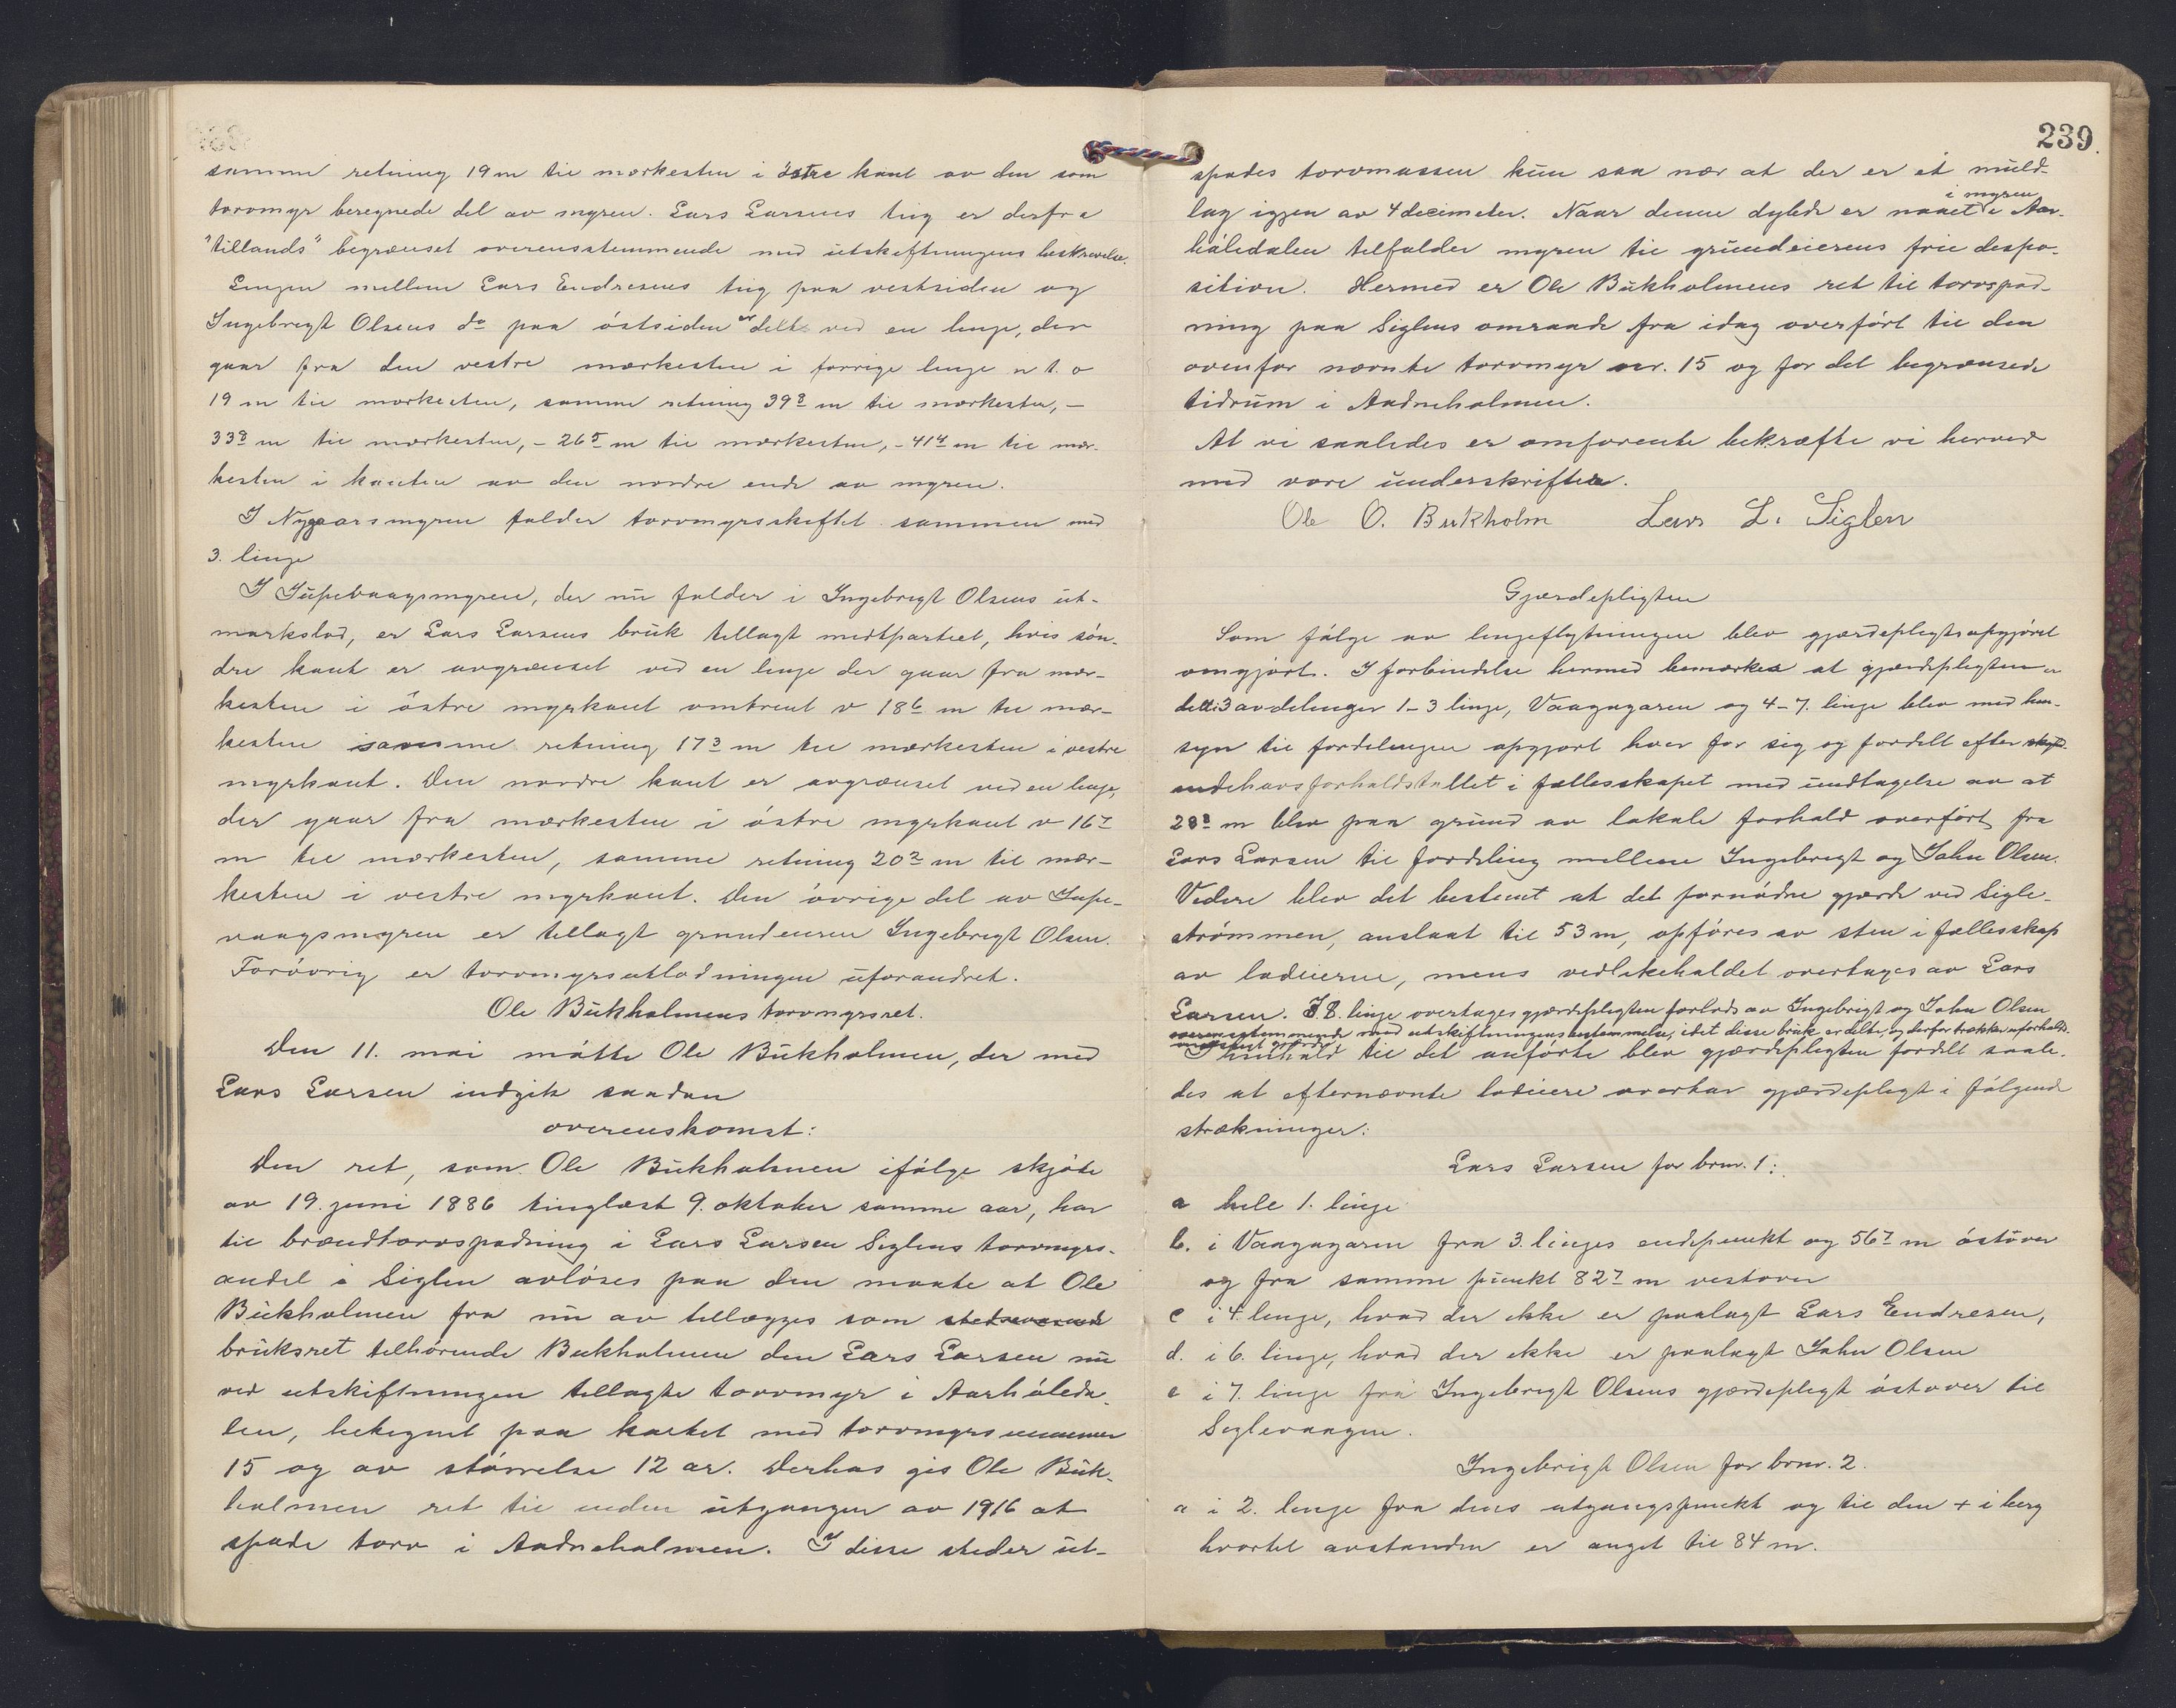 samme retning 19 m til merkesten i östre kant av den som
torvmyr beregnede del av myren. Lars Larsens teig er derfra
"tillands" begrænset overensstemmende med utskiftningens beskrivelse.
Linjen mellem Lars Endresens teig paa vestsiden og
Ingebregt Olsens do paa östsiden er delt ved en linje, der
gaar fra den vestre merkesten i forrige linje n t. o
19 m til merkesten, samme retning 39⁸ m til merkesten, –
33⁸ m til merkesten, – 26⁵ m til merkesten, – 41⁴ m til mer-
kesten i kanten av den nordre ende av myren.
I Nygaarsmyren falder torvmyrsskiftet sammen med
3. linje
I Jupevaagsmyren, der nu falder i Ingebregt Olsens ut-
markslod, er Lars Larsens bruk tillagt midtpartiet, hvis søn-
dre kant er avgrænset ved en linje der gaar fra mer-
kesten i östre myrkant omtrent v 18⁶ m til mer-
kesten samme retning 17³ m til merkesten i vestre
myrkant. Den nordre kant er avgrænset ved en linje,
der gaar fra merkesten i östre myrkant v 16⁷
m til merkesten, samme retning 20² m til mer-
kesten i vestre myrkant. Den övrige del av Jupe-
vaagsmyren er tillagt grundeieren Ingebrigt Olsen.
Forövrig er torvmyrsutlodningen uforandret.
Ole Bukholmens torvmyrsret.
Den 11. mai mötte Ole Bukholmen, der med
Lars Larsen indgik saadan
overenskomst:
Den ret, som Ole Bukholmen ifölge skjöte
av 19. juni 1886 tinglæst 9. oktober samme aar, har
til brændtorvspadning i Lars Larsen Siglens torvmyrs-
andel i Siglen avlöses paa den maate at Ole
Bukholmen fra nu av tillægges som stedsevarende
bruksret tilhörende Bukholmen den Lars Larsen nu
ved utskiftningen tillagte torvmyr i Aarhöleda-
len, betegnet paa kartet med torvmyrsnummer
15 og av störrelse 12 ar. Derhos gis Ole Buk-
holmen ret til inden utgangen av 1916 at
spade torv i Andreholmen. I disse steder ut-
239.
spades torvmassen kun saa nær at der er et muld-
i myren
lag igjen av 4 decimeter. Naar denne dybde er naaet i Aar-
höledalen tilfalder myren til grundeierens frie dispo-
sition. Hermed er Ole Bukholmens ret til torvspad-
ning paa Siglens omraade fra idag overfört til den
ovenfor nævnte torvmyr nr. 15 og for det begrænsede
tidrum i Andreholmen.
At vi saaledes er omforente bekræfte vi herved
med vore underskrifter.
Ole O. Bukholm Lars L. Siglen
Gjerdepligten
Som fölge av linjeflytningen blev gjerdepligtsopgjöret
omgjort. I forbindelse hermed bemærkes at gjerdepligten er
delt i 3 avdelinger 1–3 linje, Vaagagaren og 4–7. linje blev med hen-
syn til fordelingen opgjort hver for sig og fordelt efter
andehavsforholdstallet i fællesskapet med undtagelse av at
28⁸ m blev paa grund av lokale forhold overfört fra
Lars Larsen til fordeling mellem Ingebregt og John Olsen.
Videre blev det bestemt at det fornödne gjerde ved Sigle-
strömmen, anslaat til 53 m, opföres av sten i fællesskap
av lodeierne, mens vedlikeholdet overtages av Lars
Larsen. I 8. linje overtages gjerdepligten forlods av Ingebrigt og John Olsen
overensstemmende med utskiftningens bestemmelse, idet disse bruk er delte, og derfor trækker uforholds-
I henhold til det anförte blev gjerdepligten fordelt saale-
des at efternævnte lodeiere overtar gjerdepligt i fölgende
strækninger:
Lars Larsen for brnr. 1:
a hele 1. linje
b. i Vaagagaren fra 3. linjes endepunkt og 56⁷ m östover
og fra samme punkt 82⁷ m vestover
c i 4. linje, hvad der ikke er paalagt Lars Endresen,
d. i 6. linje, hvad der ikke er paalagt John Olsen
e i 7. linje fra Ingebrigt Olsens gjerdepligt östover til
Siglevaagen.
Ingebrigt Olsen for brnr. 2.
a i 2. linje fra dens utgangspunkt og til den + i berg
hvortil avstanden er anget til 84 m.